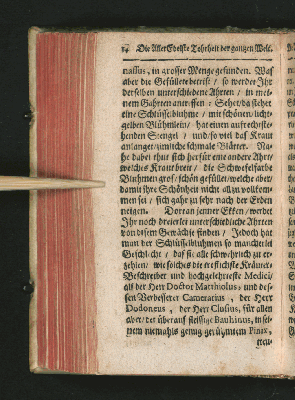 14 Die Aller Edelste Tohrheit der gantzen Welt.
nassus, in grosser Menge gefunden. Was
aber die Gefüllete betrift / so werdet Ihr
derselben unterschiedene Ahrten / in mei-
nem Gahrten antreffen / Sehet / da stehet
eine Schlüsselbluhme / mit schönen / licht-
gelben Blühmlein / hat einen aufrechtste-
henden Stengel / und / so viel das Kraut
anlanget / zimliche schmale Blätter. Na-
he dabei thut sich herfür eine andere Ahrt /
welches Kraut breit / die Schwefelfarbe
Bluhmen groß / schön gefüllet / welche aber /
damit ihre Schönheit nicht allzu vollkom-
men sei / sich gahr zu sehr nach der Erden
neigen. Dort an jenner Ekken / werdet
Ihr noch dreierlei unterschiedliche Ahrten
von disem Gewächse finden / Jedoch hat
man der Schlüsselbluhmen so mancherlei
Geschlecht / daß sie alle schwehrlich zu er-
zehlen / wie solches die treflichste Kräuter-
Beschreiber und hochgelehrteste Medici /
als der Herr Doctor Matthiolus / und des-
sen Verbesserer Camerarius , der Herr
Dodoneus , der Herr Clusius, für allen
aber / der überauß fleissige Bauhinus, in sei-
nem niemahls genug gerühmtem Pinax,